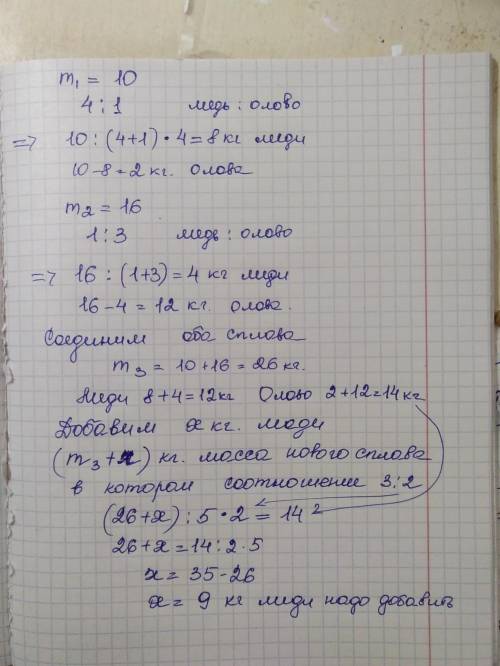 m₁ = 10
4 : 1 медь : олово
=> 10 : (4+1) • 4 = 8 кг меди
10 - 8 = 2 кг. олова
m₂ = 16
1 : 3 медь : олово
=> 16 : (1+3) = 4 кг меди
16 - 4 = 12 кг. олова.
Соединим оба сплава
m₃ = 10 + 16 = 26 кг.
Меди 8+4=12кг Олово 2+12=14кг
Добавим x кг. меди
(m₃+x) кг. масса нового сплава
в котором соотношение 3:2
(26+x) : 5 • 2 = 14
26+x = 14 : 2 · 5
x = 35 - 26
x = 9 кг меди надо добавить